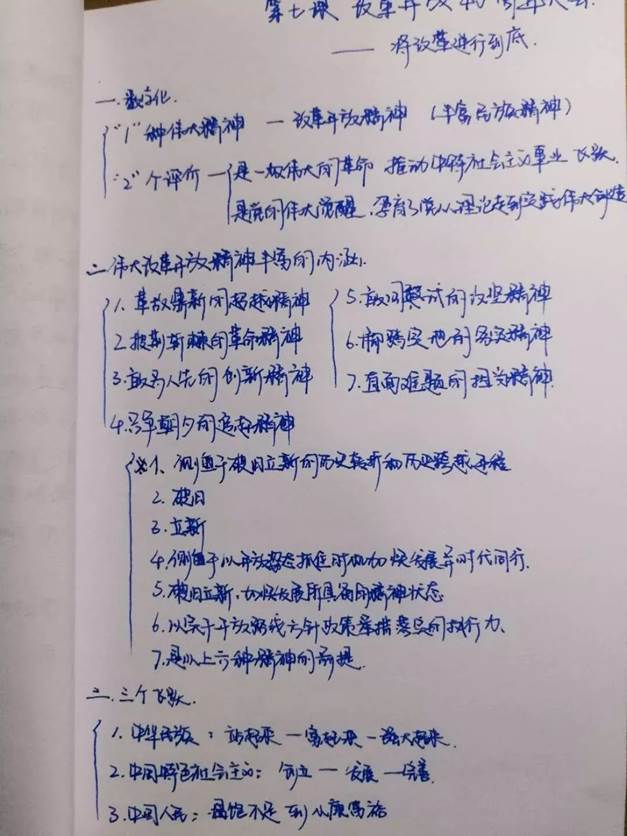 第七课 改革开放40周年大会
—— 将改革进行到底.
一.数字化.
“1”种伟大精神 — 改革开放精神 (丰富民族精神)
“2”个评价 — 是一场伟大的革命 推动中特社会主义事业飞跃.
是党的伟大觉醒,孕育了党从理论走到实践伟大创造
二.伟大改革开放精神丰富的内涵.
1.革故鼎新的超越精神
2.披荆斩棘的革命精神
3.敢为人先的创新精神
4.只争朝夕的追赶精神
5.敢闯敢试的攻坚精神
6.脚踏实地的务实精神
7.直面难题的担当精神.
1、侧重于破旧立新的历史转折和历史跨越、历程
2.破旧
3.立新
4.侧重于以开放姿态抓住时机加快发展与时代同行.
5.破旧立新,加快发展所具备的精神状态
6.以实干开放路线方针政策举措落实的执行力.
7.是以上六种精神的前提.
三.三个飞跃.
1.中华民族:站起来—富起来—强大起来.
2.中国特色社会主义:创立—发展—完善.
3.中国人民:温饱不足到小康富裕